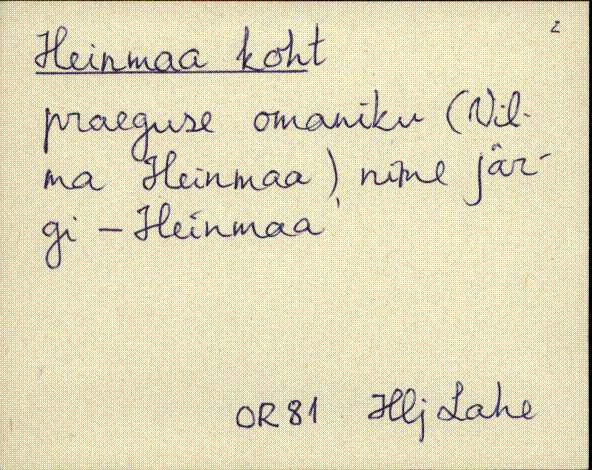 2
Heinmaa koht
praeguse omaniku (Vil-
ma Heinmaa) nime jär-
gi – Heinmaa
OR 81 Hlj Lahe